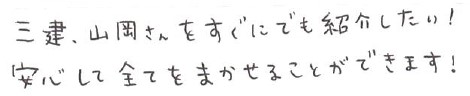 三建、山岡さんをすぐにでも紹介したい!
安心して全てをまかせることができます!